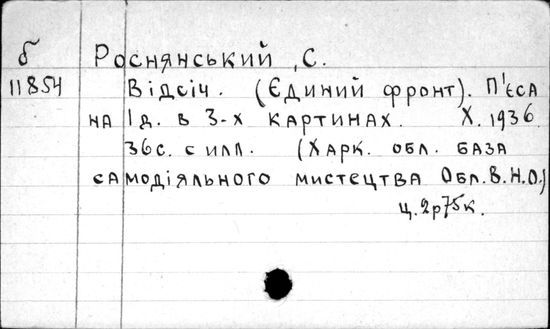 б Роснянський, С.
11854 Відсіч. (Єдиний фронт). П'єса
на 1 д. в 3-х картинах. Х. 1936.
36с. с илл. (Харк. обл. база
самодіяльного мистецтва Обл.В.Н.О.)
ц. 2р75к.